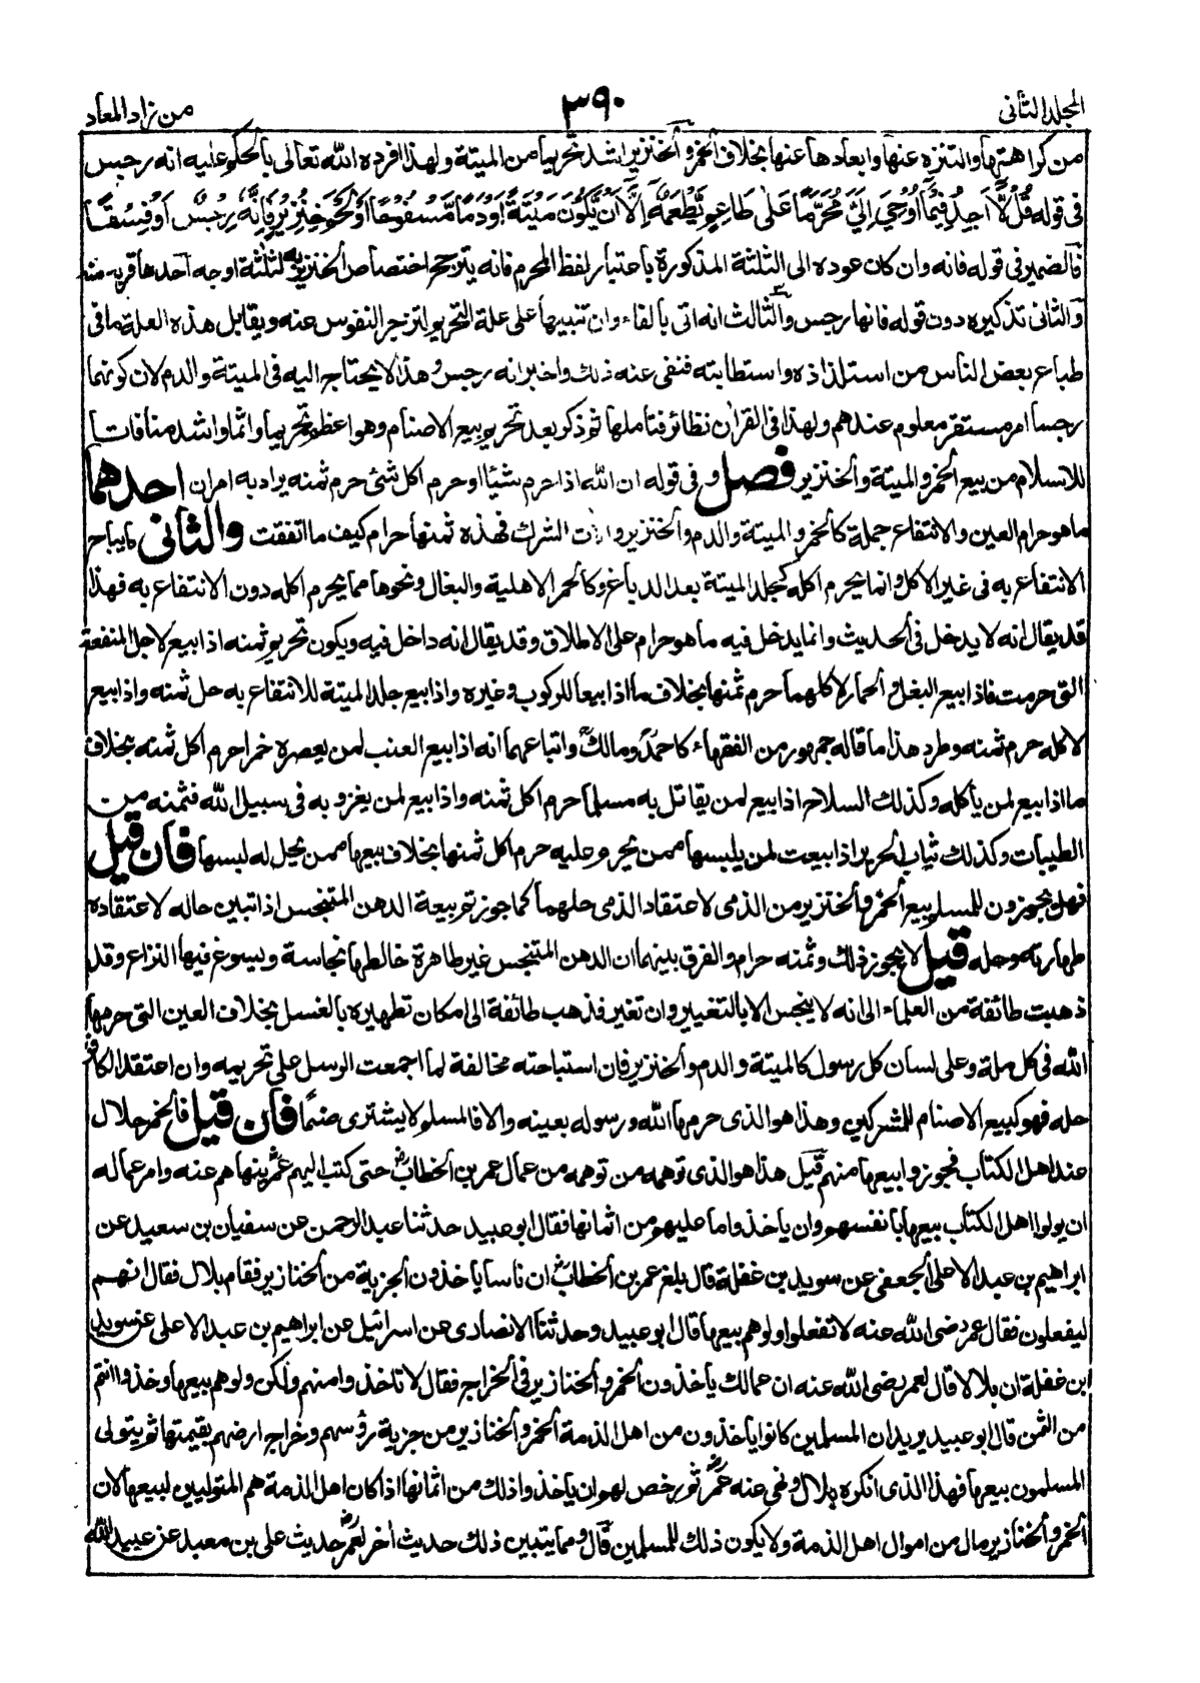 المجلد الثاني
٣٩٠
من زاد المعاد
من كراهتها والتنزه عنها وابعادها عنها بخلاف الخمر والخنزير اشد تحريما من الميتة ولهذا افرده الله تعالى بالحكم عليه انه رجس
في قوله قُلْ لَّا اَجِدُ فِيْمَا اُوْحِيَ اِلَيَّ مُحَرَّمًا عَلٰى طَاعِمٍ يَّطْعَمُهٗ اِلَّا اَنْ يَّكُوْنَ مَيْتَةً اَوْ دَمًا مَّسْفُوْحًا اَوْ لَحْمَ خِنْزِيْرٍ فَاِنَّهٗ رِجْسٌ اَوْ فِسْقًا
فالضمير في قوله فانه وان كان عوده الى الثلثة المذكورة باعتبار لفظ المحرم فانه يترجح اختصاص الخنزير به لثلثة اوجه احدها قربه منه
والثاني تذكيره دون قوله فانها رجس والثالث انه اتى بالفاء وان تنبيها على علة التحريم لتزجر النفوس عنه ويقابل هذه العلة ما في
طباع بعض الناس من استلذاذه واستطابته فنفى عنه ذلك واخبر انه رجس وهذا لا يحتاج اليه في الميتة والدم لان كونهما
رجسا امر مستقر معلوم عندهم ولهذا في القران نظائر فتاملها ثم ذكر بعد تحريم بيع الاصنام وهو اعظم تحريما واثما واشد منافات
للاسلام من بيع الخمر والميتة والخنزير فصل وفي قوله ان الله اذا حرم شيئا او حرم اكل شئ حرم ثمنه يراد به امران احدهما
ما هو حرام العين والانتفاع جملة كالخمر والميتة والدم والخنزير و الشرك فهذه ثمنها حرام كيف ما اتفقت والثاني ما يباح
الانتفاع به في غير الاكل وانما يحرم اكله كجلد الميتة بعد الدباغ وكالحمر الاهلية والبغال ونحوها مما يحرم اكله دون الانتفاع به فهذا
قد يقال انه لا يدخل في الحديث وانما يدخل فيه ما هو حرام على الاطلاق وقد يقال انه داخل فيه ويكون تحريم ثمنه اذا بيع لاجل المنفعة
التي حرمت فاذا بيع البغل والحمار لاكلهما حرم ثمنها بخلاف ما اذا بيعا للركوب وغيره واذا بيع جلد الميتة للانتفاع به حل ثمنه واذا بيع
لاكله حرم ثمنه وطرد هذا ما قاله جمهور من الفقهاء كاحمد ومالك واتباعهما انه اذا بيع العنب لمن يعصره خمرا حرم اكل ثمنه بخلاف
ما اذا بيع لمن ياكله وكذلك السلاح اذا بيع لمن يقاتل به مسلما حرم اكل ثمنه واذا بيع لمن يغزو به في سبيل الله فثمنه من
الطيبات وكذلك ثياب الحرير اذا بيعت لمن يلبسها ممن يحرم عليه حرم اكل ثمنها بخلاف بيعها ممن يحل له لبسها فان قيل
فهل تجوزون للمسلم بيع الخمر والخنزير من الذمي لاعتقاد الذمي حلهما كما جوزتم بيعة الدهن المتنجس اذا تبين حاله لاعتقاده
طهارته وحله قيل لا يجوز ذلك وثمنه حرام والفرق بينهما ان الدهن المتنجس غير طاهرة خالطها نجاسة ويسوغ فيها النزاع وقد
ذهبت طائفة من العلماء الى انه لا ينجس الا بالتغيير وان تغير فذهب طائفة الى امكان تطهيره بالغسل بخلاف العين التي حرمها
الله في كل ملة وعلى لسان كل رسول كالميتة والدم والخنزير فان استباحته مخالفة لما اجمعت الرسل على تحريمه وان اعتقد الكافر
حله فهو كبيع الاصنام للمشركين وهذا هو الذي حرمها الله ورسوله بعينه والا فالمسلم لا يشتري صنما فان قيل فالخمر حلال
عند اهل الكتاب فجوزوا بيعها منهم قيل هذا هو الذي توهمه من توهمه من عمال عمر بن الخطاب حتى كتب اليهم عمر ينهاهم عنه وامر عماله
ان يولوا اهل الكتاب بيعها بانفسهم وان ياخذوا ما عليهم من اثمانها فقال ابو عبيد حدثنا عبد الرحمن عن سفيان بن سعيد عن
ابراهيم بن عبد الاعلى الجعفي عن سويد بن غفلة قال بلغ عمر بن الخطاب ان ناسا ياخذون الجزية من الخنازير فقام بلال فقال انهم
ليفعلون فقال عمر رضى الله عنه لا تفعلوا ولوهم بيعها قال ابو عبيد وحدثنا الانصاري عن اسرائيل عن ابراهيم بن عبد الاعلى عن سويد
ابن غفلة ان بلالا قال لعمر رضى الله عنه ان عمالك ياخذون الخمر والخنازير في الخراج فقال لا تاخذوا منهم ولكن ولوهم بيعها وخذوا انتم
من الثمن قال ابو عبيد يريد ان المسلمين كانوا ياخذون من اهل الذمة الخمر والخنازير من جزية رؤسهم وخراج ارضهم بقيمتها ثم يتولى
المسلمون بيعها فهذا الذي انكره بلال ونهى عنه عمر ثم رخص لهم ان ياخذوا ذلك من اثمانها اذا كان اهل الذمة هم المتوليين لبيعها لان
الخمر والخنازير مال من اموال اهل الذمة ولا يكون ذلك للمسلمين قال ومما يتبين ذلك حديث اخر لعمر حديث علي بن معبد عن عبيد الله